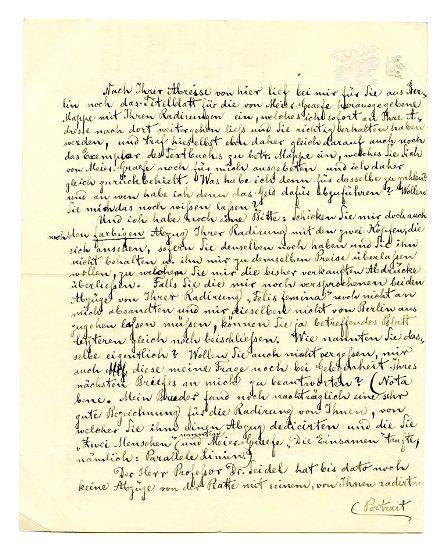 Nach Ihrer Abreise von hier lief bei mir für Sie aus Ber-
lin noch das Titelblatt für die von Meier-Graefe herausgegebene
Mappe mit Ihren Radirungen ein, welches ich sofort an Ihre A-
dresse nach dort weitergehen ließ und Sie richtig erhalten haben
werden, und traf hieselbst ein daher gleich darauf auch noch
das Exemplar des Textbuchs zu betr. Mappe ein, welches Sie sich
von Meier-Graefe noch für mich ausgebeten und ich daher
gleich zurückbehielt. Was habe ich denn für dasselbe zu zahlen
und an wen habe ich denn das Geld dafür abzuführen? Wollen
Sie mich das noch wissen lassen?
Und ich habe noch eine Bitte: schicken Sie mir doch auch
noch den farbigen Abzug Ihrer Radirung mit den zwei Köpfen, die
sich ansehen, sofern Sie denselben noch haben und Sie ihn
nicht behalten u. ihn mir zu demselben Preise überlassen
wollen, zu welchem Sie mir die bisher verkauften Abdrücke
überließen. Falls Sie die mir noch versprochenen beiden
Abzüge von Ihrer Radirung "Felis femina" noch nicht an
mich absandten und mir dieselben nicht von Berlin aus
zugehen lassen müssen, können Sie ja betreffendes Blatt
letzteren gleich noch beischliessen. Wie nannten Sie das-
selbe eigentlich? Wollen Sie auch nicht vergessen, mir
auch diese meine Frage noch bei Gelegenheit Ihres
nächsten Briefes an mich zu beantworten? (Nota
bene. Mein Bruder fand noch nachträglich eine sehr
gute Bezeichnung für die Radirung von Ihnen, von
welcher Sie ihm einen Abzug dedicirten und die Sie
"Zwei Menschen" und Meier-Graefe "Die Einsamen" taufte,
nämlich: Parallele Linien)
Der Herr Professor Dr. Seidel hat bis dato noch
keine Abzüge von der Platte mit seinem, von Ihnen radirten
(Portrait